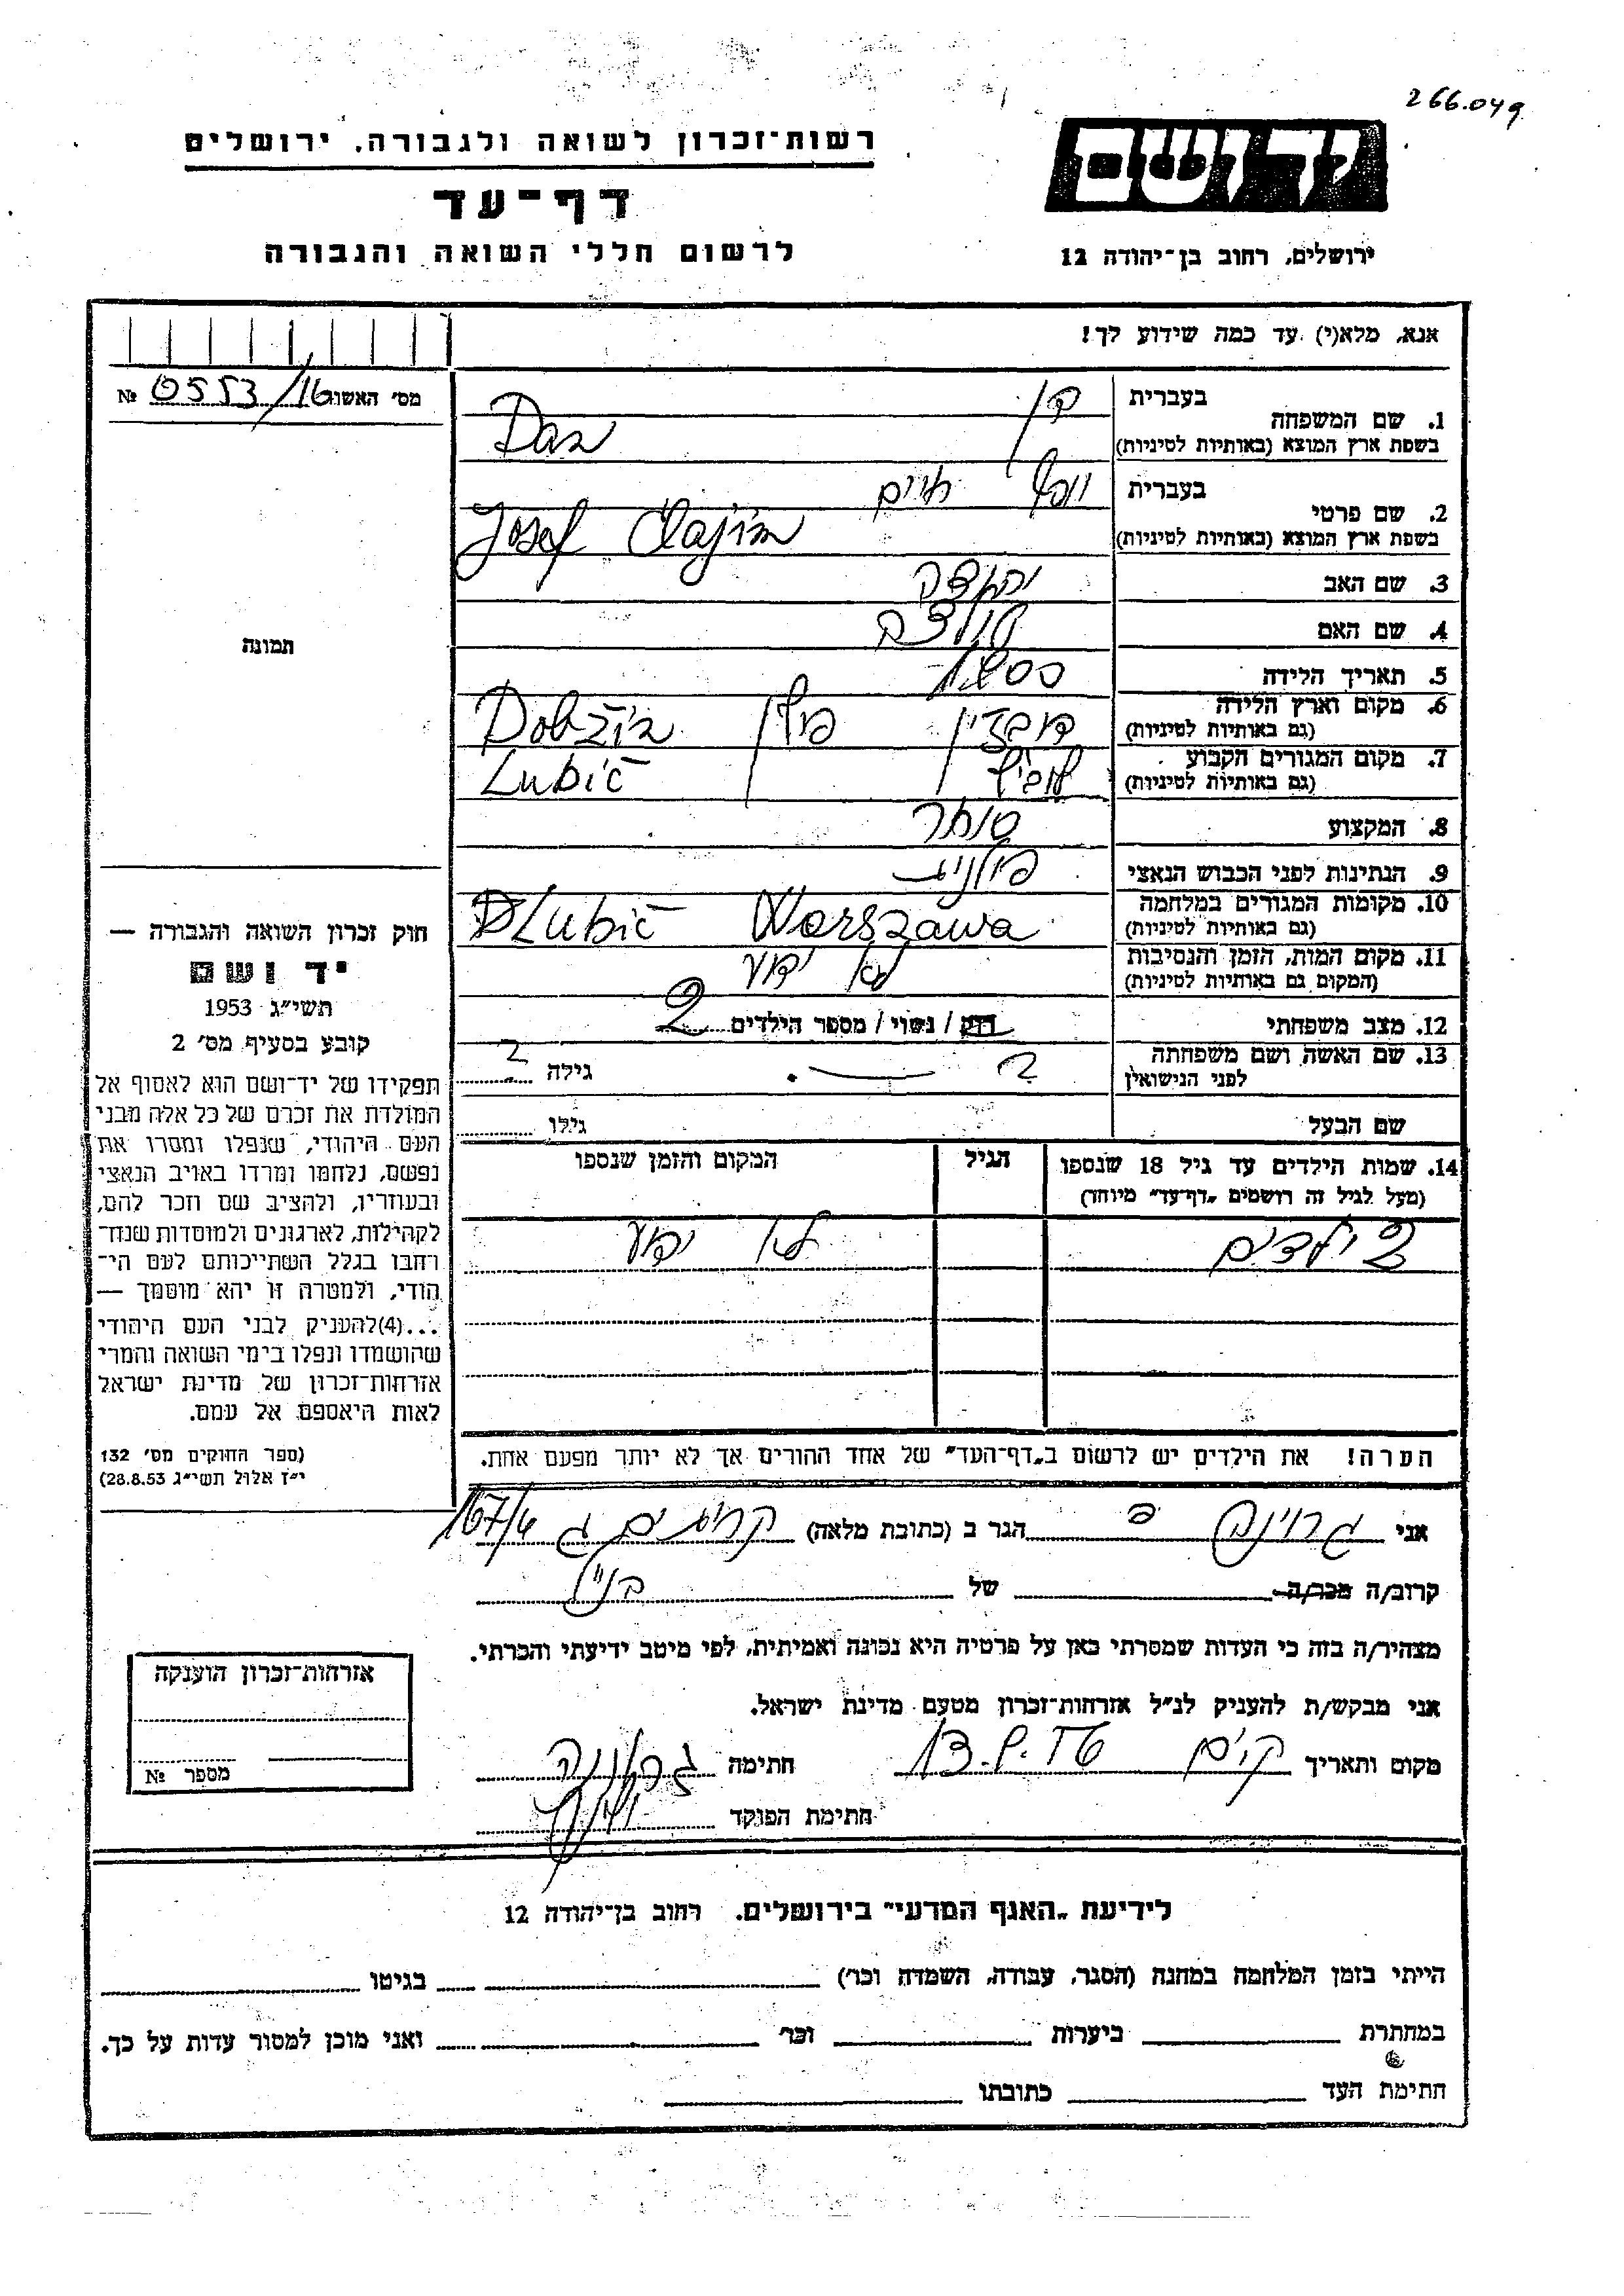 266.049
רשות־זכרון לשואה ולגבורה, ירושלים
יד ושם
דף־עד
לרשום חללי השואה והגבורה
ירושלים, רחוב בן־יהודה 12
אנא, מלא(י) עד כמה שידוע לך!
מס׳ האשו № 0553/16
1. שם המשפחה
בעברית דן
בשפת ארץ המוצא (באותיות לטיניות) Dan
2. שם פרטי
בעברית יוסף חיים
בשפת ארץ המוצא (באותיות לטיניות) Josef Chajim
3. שם האב יהודה
4. שם האם
5. תאריך הלידה
6. מקום וארץ הלידה
(גם באותיות לטיניות) דובזין פולין Dobžin
7. מקום המגורים הקבוע
(גם באותיות לטיניות) לוביץ Lubič
8. המקצוע סוחר
9. הנתינות לפני הכבוש הנאצי פולנית
10. מקומות המגורים במלחמה
(גם באותיות לטיניות) Lubič Warszawa
11. מקום המות, הזמן והנסיבות
(המקום גם באותיות לטיניות) לא ידוע
12. מצב משפחתי רוק / נשוי / מספר הילדים 2
13. שם האשה ושם משפחתה
לפני הנישואין ? — . גילה ?
שם הבעל גילו
14. שמות הילדים עד גיל 18 שנספו
(מעל לגיל זה רושמים „דף־עד” מיוחד)
הגיל
המקום והזמן שנספו
2 ילדים לא ידוע
הערה! את הילדים יש לרשום ב„דף־העד” של אחד ההורים אך לא יותר מפעם אחת.
תמונה
חוק זכרון השואה והגבורה —
יד ושם
תשי״ג 1953
קובע בסעיף מס׳ 2
תפקידו של יד־ושם הוא לאסוף אל
המולדת את זכרם של כל אלה מבני
העם היהודי, שנפלו ומסרו את
נפשם, נלחמו ומרדו באויב הנאצי
ובעוזריו, ולהציב שם וזכר להם,
לקהילות, לארגונים ולמוסדות שנח־
רבו בגלל השתייכותם לעם הי־
הודי, ולמטרה זו יהא מוסמך —
...(4)להעניק לבני העם היהודי
שהושמדו ונפלו בימי השואה והמרי
אזרחות־זכרון של מדינת ישראל
לאות היאספם אל עמם.
(ספר החוקים מס׳ 132
י״ז אלול תשי״ג 28.8.53)
אני גרוינה פ הגר ב (כתובת מלאה) קרית ים ג 167/4
קרוב/ה מכר/ה של
מצהיר/ה בזה כי העדות שמסרתי כאן על פרטיה היא נכונה ואמיתית, לפי מיטב ידיעתי והכרתי.
אני מבקש/ת להעניק לנ״ל אזרחות־זכרון מטעם מדינת ישראל.
מקום ותאריך ק. ים חתימה
חתימת הפוקד
אזרחות־זכרון הוענקה
מספר №
לידיעת „האגף המדעי” בירושלים, רחוב בן־יהודה 12
הייתי בזמן המלחמה במחנה (הסגר, עבודה, השמדה וכר׳) בגיטו
במחתרת ביערות וכר׳ ואני מוכן למסור עדות על כך.
חתימת העד כתובתו